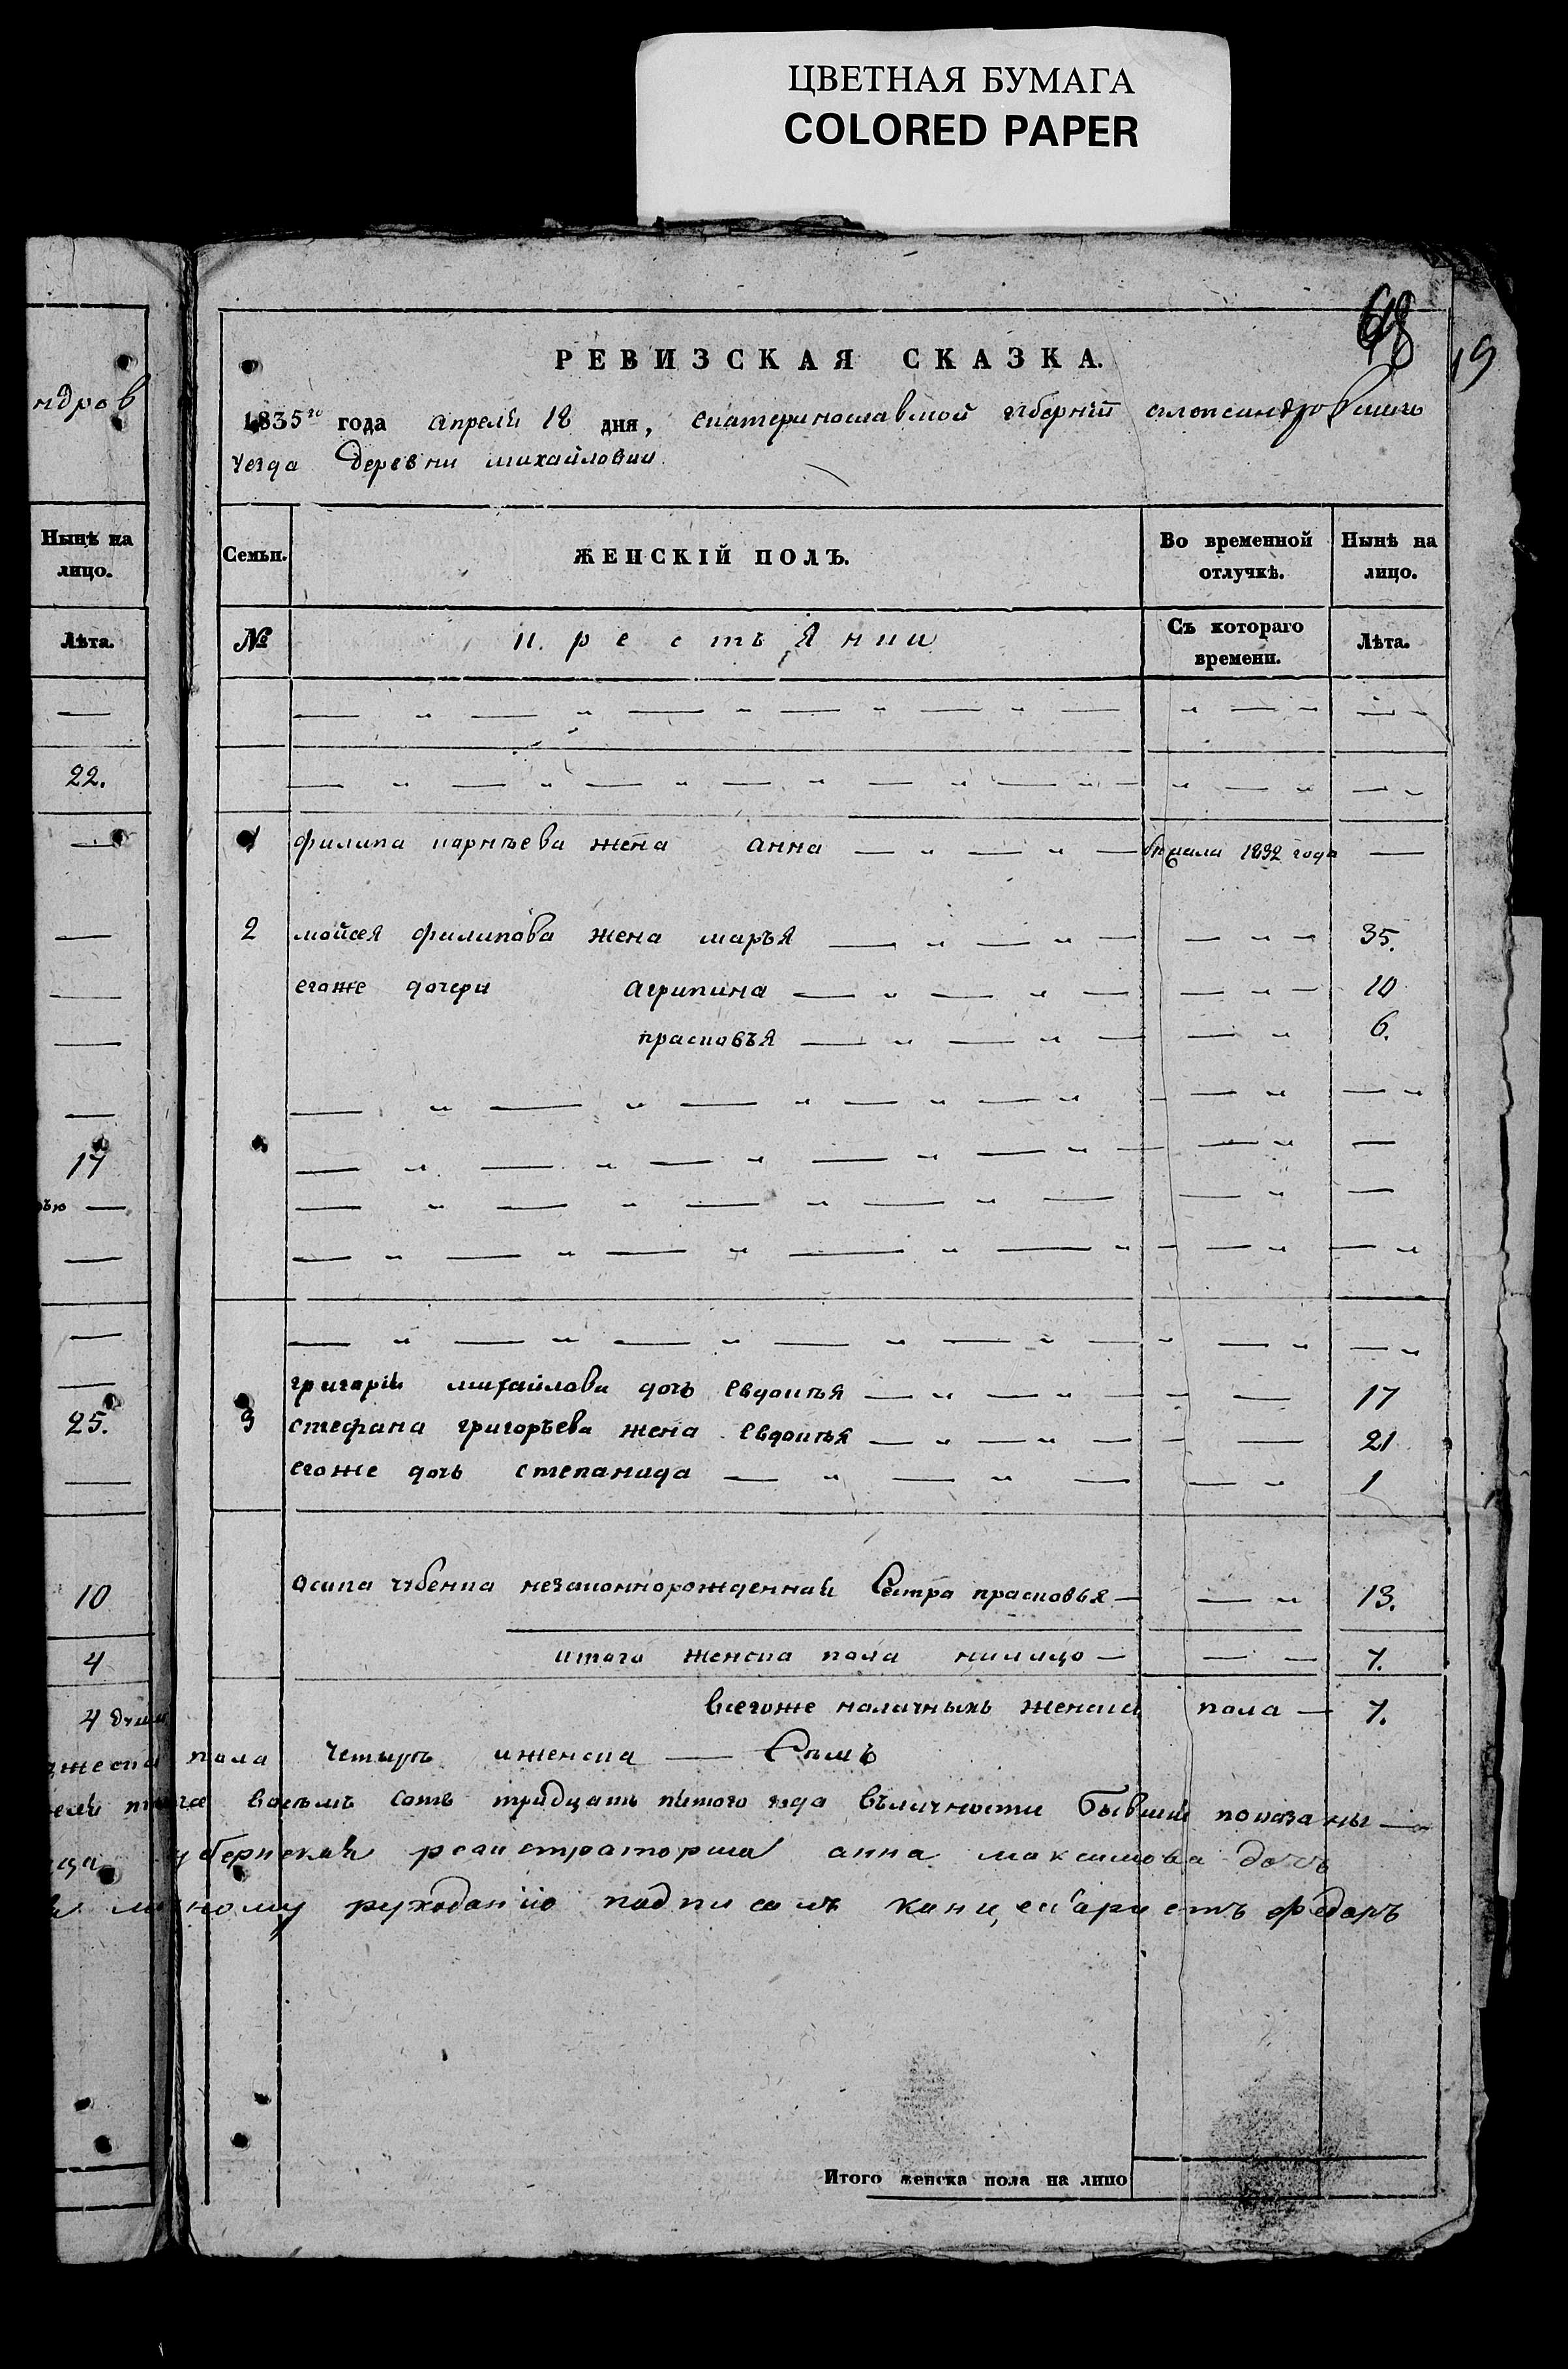 ЦВЕТНАЯ БУМАГА
COLORED PAPER
19
РЕВИЗСКАЯ СКАЗКА.
1835го года апреля 18 дня, екатеринославской губернiи александровскаго
уезда деревни михайловки
ндров
Нынѣ на лицо.
Лѣта.
22.
17
25.
10
4
4 души
Семьи.
ЖЕНСКIЙ ПОЛЪ.
Во временной отлучкѣ.
Нынѣ на лицо.
№
крестьянки
Съ котораго времени.
Лѣта.
1 филипа карнѣева жена анна — " — " — 1832 года —
2 мойсея филипова жена марья — " — " — — " — 35.
егоже дочери агрипина — " — " — — " — 10
прасковья — " — " — — " 6.
григория михайлова дочь евдокѣя — " — " — — 17
3 стефана григорьева жена евдокѣя — " — " — — 21
егоже дочь степанида — " — " — — " 1
осипа незаконнорожденная сестра прасковья — — " 13.
итого женска пола налицо — — — 7.
всегоже наличныхъ женска пола — 7.
пола четыре иженска — Семь
восемь сотъ тридцать пятого года въличности бывшии показаны —
губернская регистраторша анна максимова дочь
руходанiю подписалъ канцеляристъ федоръ
Итого женска пола на лицо